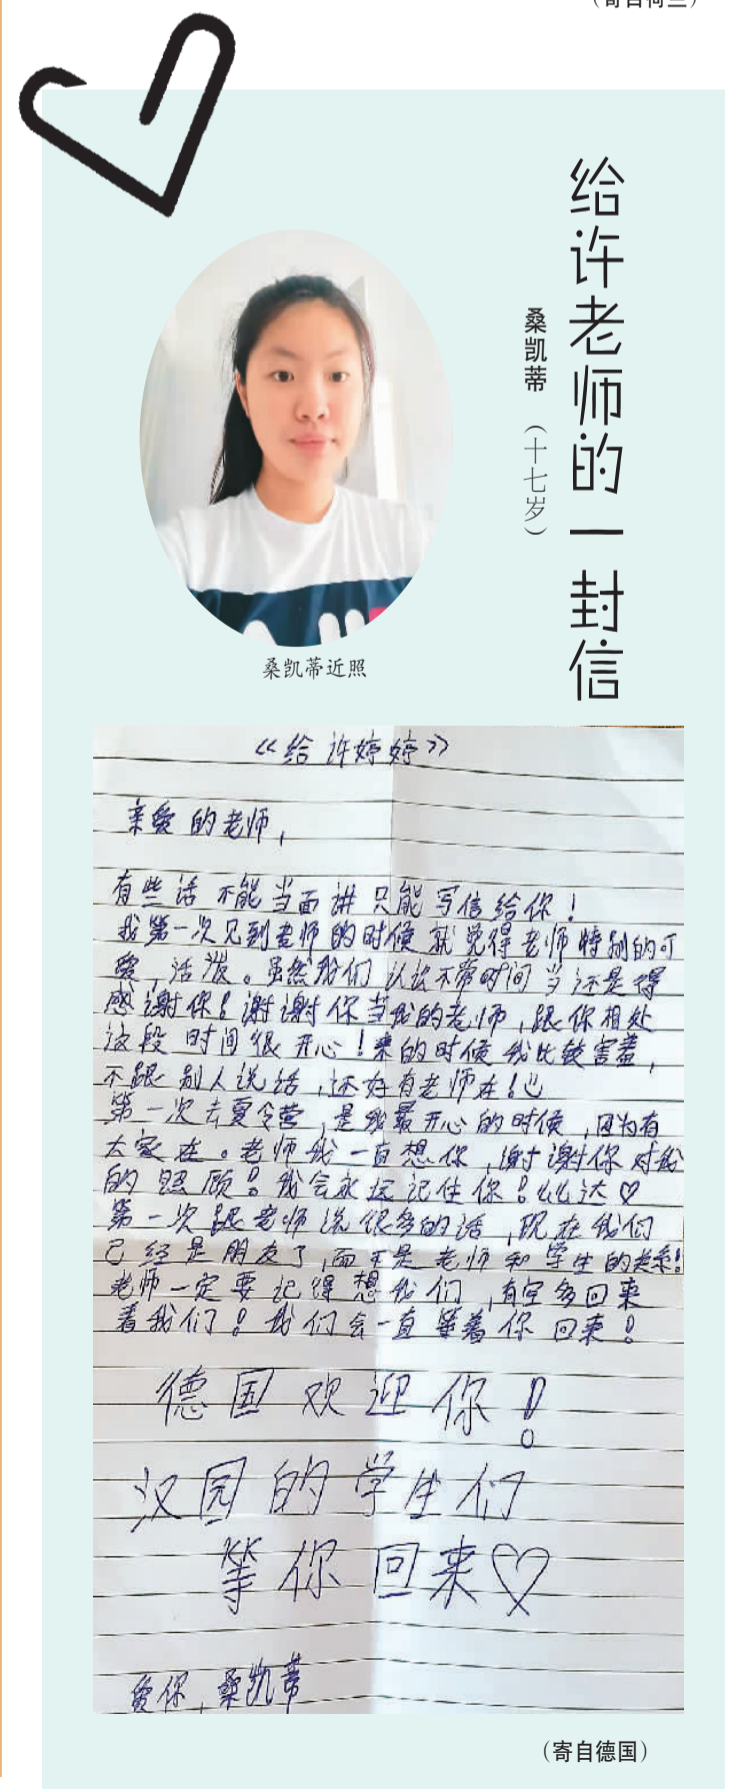 （寄自荷兰）
给许老师的一封信
桑凯蒂（十七岁）
桑凯蒂近照
《给许婷婷》
亲爱的老师，
有些话不能当面讲只能写信给你！
我第一次见到老师的时候就觉得老师特别的可
爱，活泼。虽然我们认识不常时间当还是得
感谢你！谢谢你当我的老师，跟你相处
这段时间很开心！来的时候我比较害羞，
不跟别人说话，还好有老师在！
第一次去夏令营，是我最开心的时候，因为有
大家在。老师我一直想你，谢谢你对我
的照顾！我会永远记住你！么么达♡
第一次跟老师说很多的话，现在我们
已经是朋友了，而不是老师和学生的关系！
老师一定要记得想我们，有空多回来
看我们！我们会一直等着你回来！
德国欢迎你！
汉园的学生们
等你回来♡
爱你，桑凯蒂
（寄自德国）